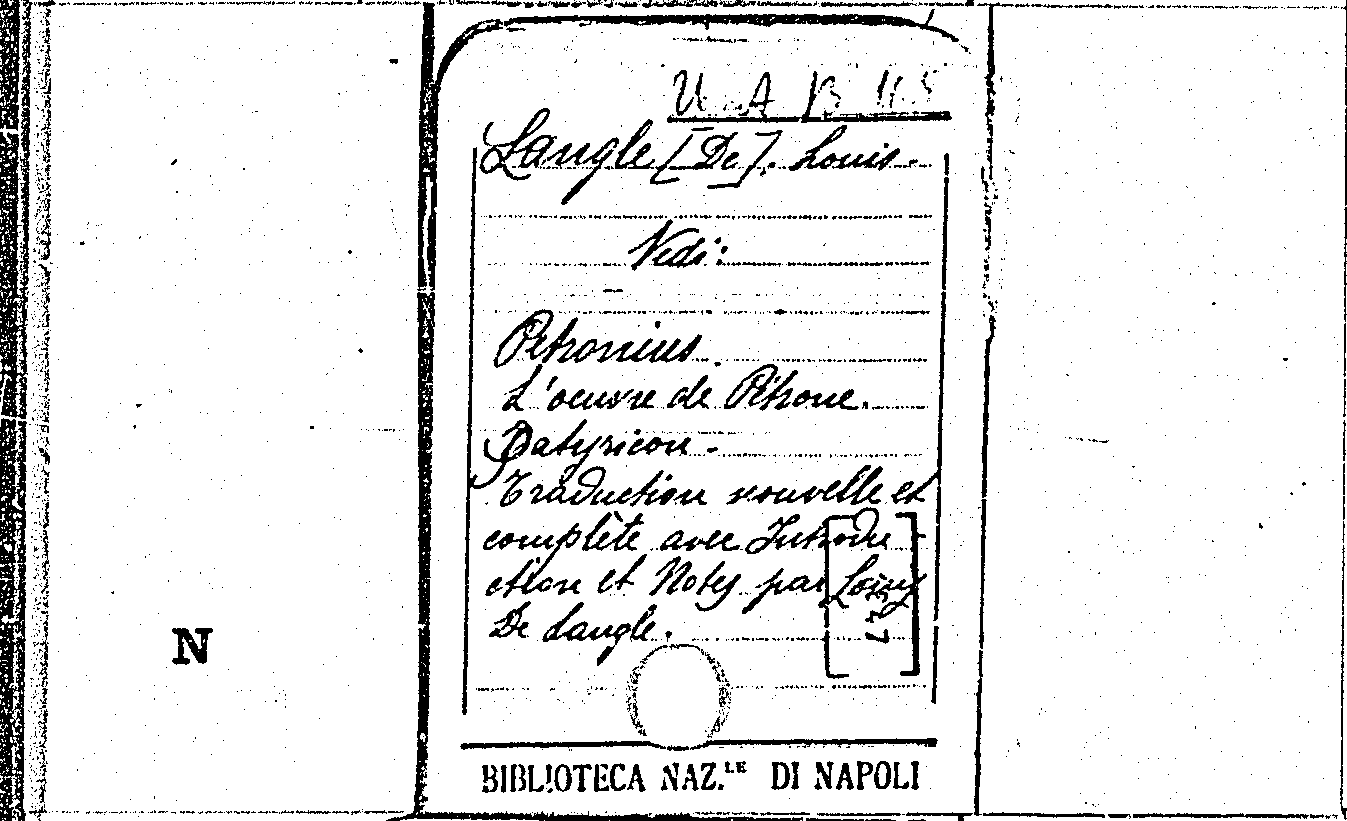 U. A B 45
Langle [De]. Louis.
Vedi:
Petronius.
L'oeuvre de Pétrone.
Satyricon.
Traduction nouvelle et
complète avec Introdu-
ction et Notes par Louis
De Langle.
N
BIBLIOTECA NAZ.LE DI NAPOLI